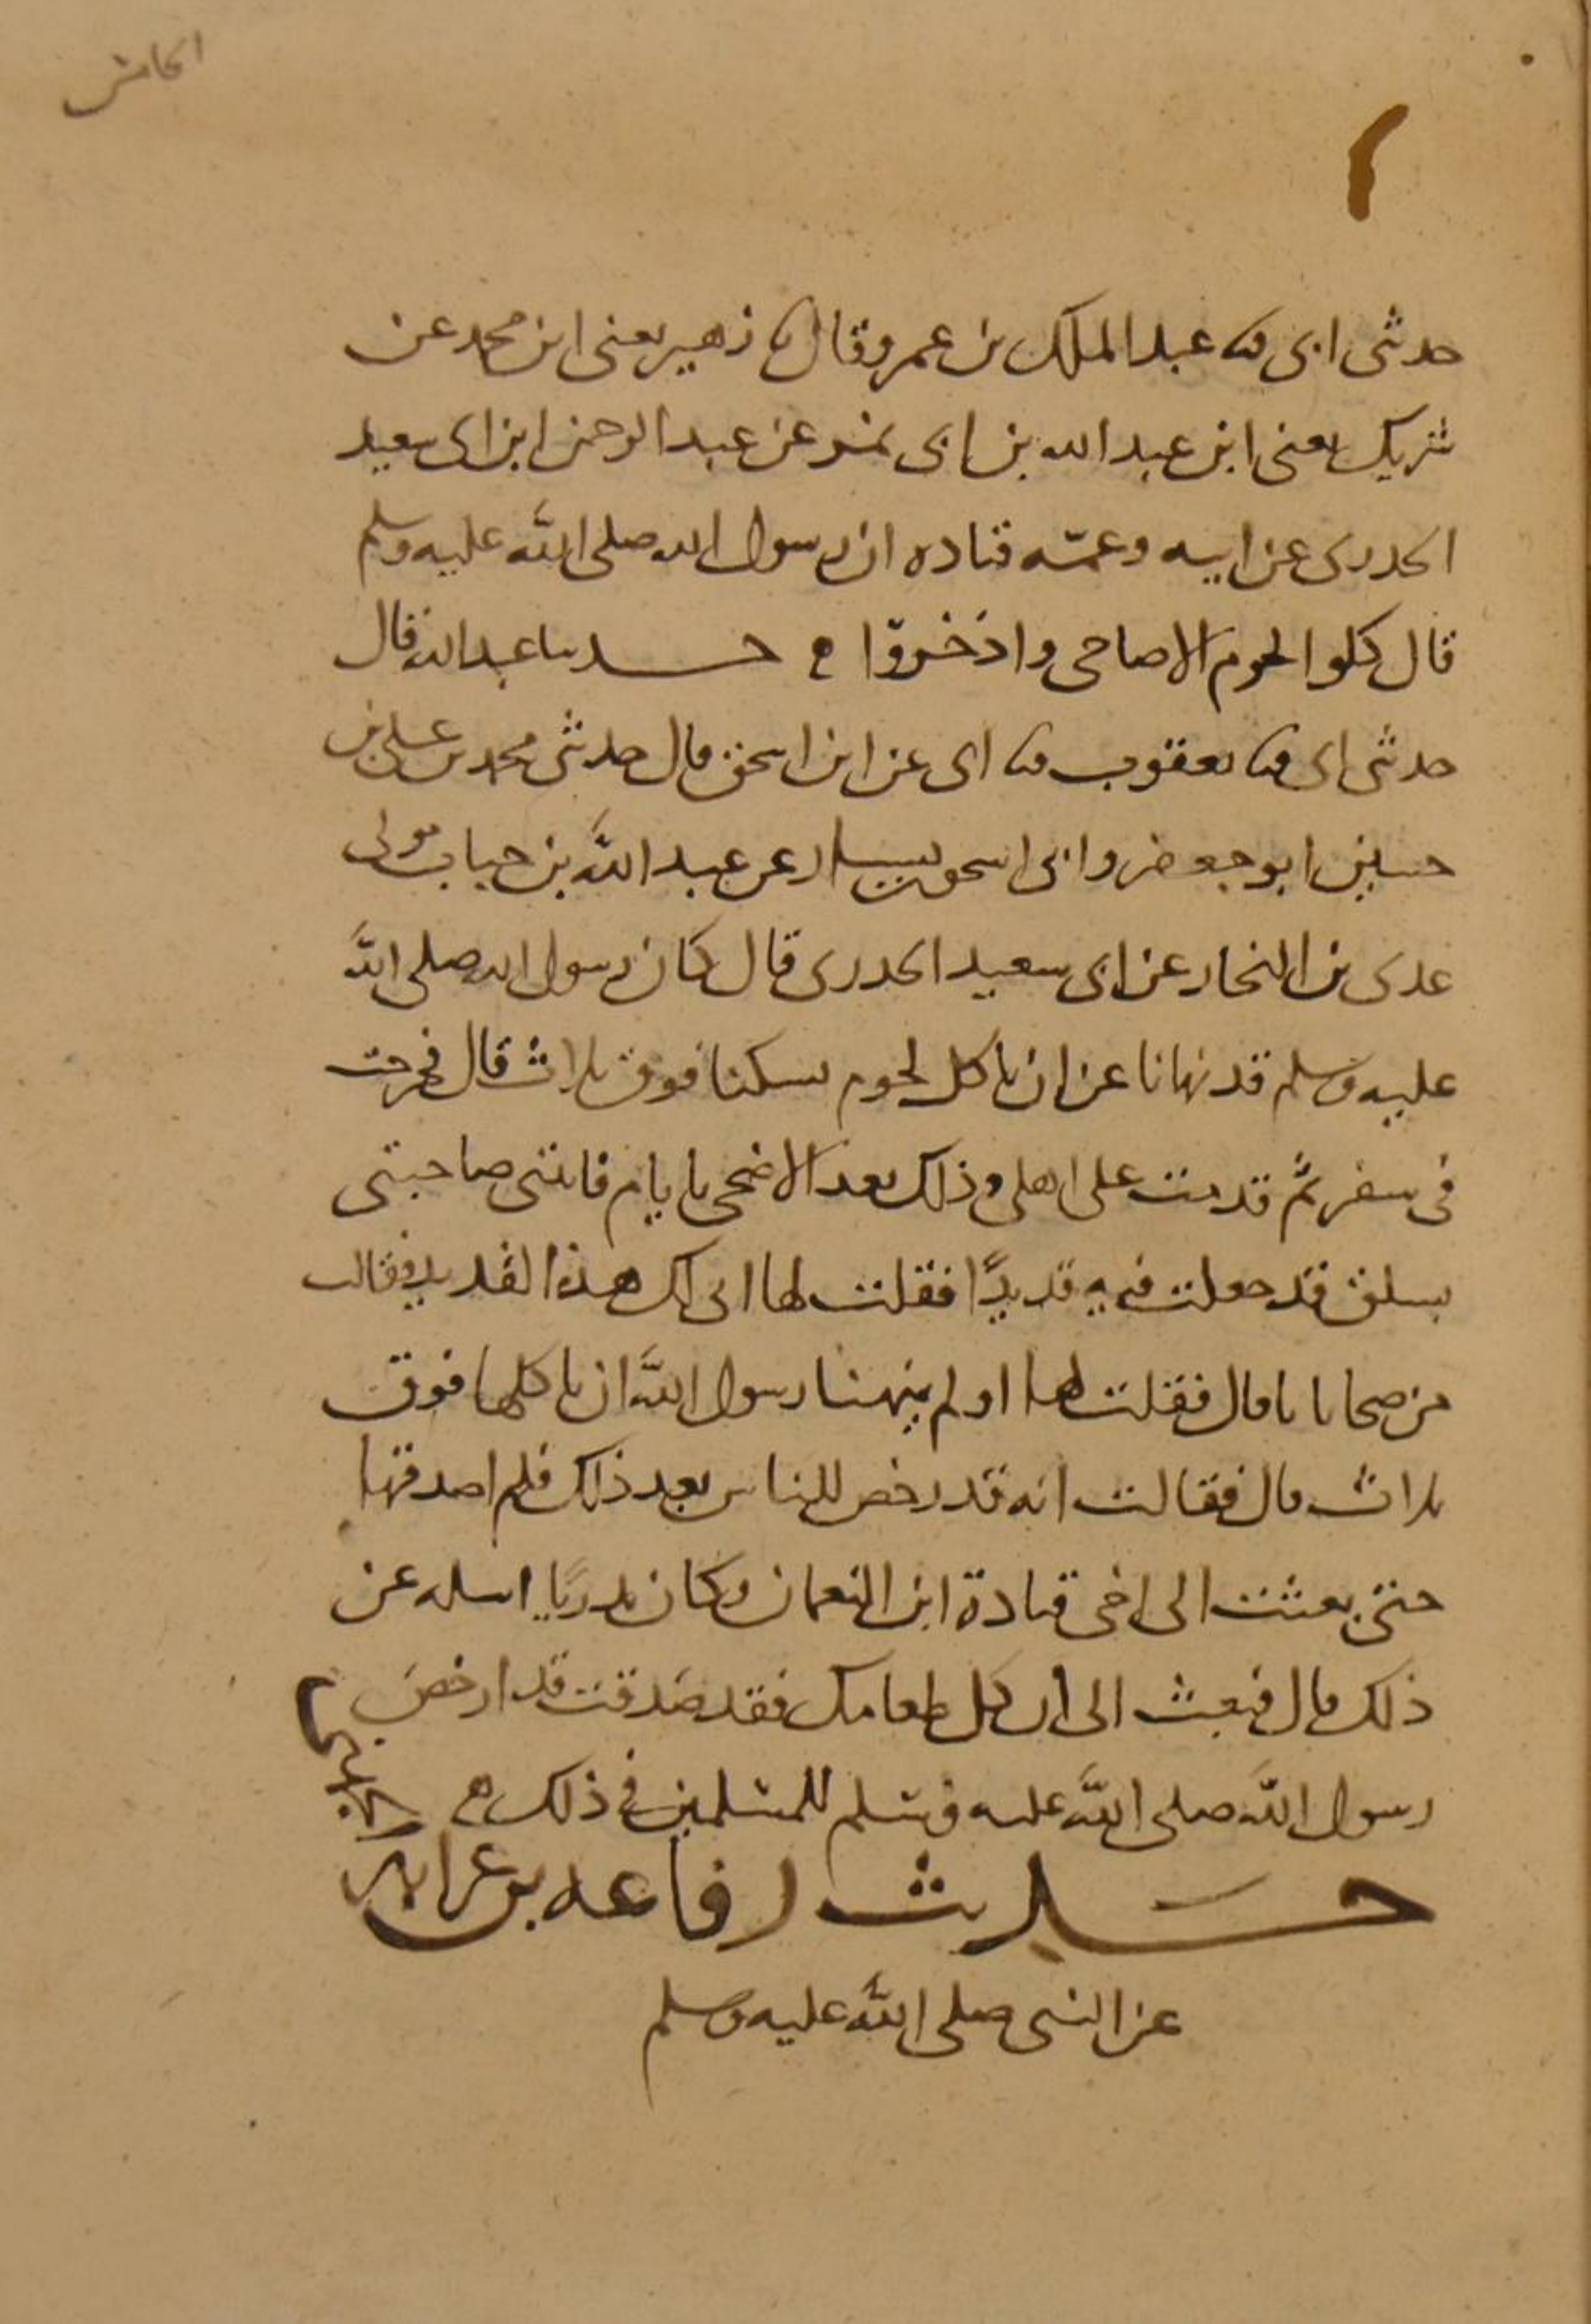 الخامس
٢
حدثنى ابى ثنا عبد الملك بن عمرو قال ثنا زهير يعنى ابن محمد عن
شريك يعنى ابن عبد الله بن ابى نمر عن عبد الرحمن ابن ابى سعيد
الخدرى عن ابيه وعمّه قتاده ان رسول الله صلى الله عليه وسلم
قال كلوا لحوم الاضاحى واذخروّا حدثنا عبد الله قال
حدثنى ابى ثنا يعقوب ثنا ابى عن ابن اسحق قال حدثنى محمد بن على بن
حسين ابو جعفر وابى اسحق بن يسار عن عبد الله بن خباب مولى
عدى بن النجار عن ابى سعيد الخدرى قال كان رسول الله صلى الله
عليه وسلم قد نهانا عن ان ناكل لحوم نسكنا فوق ثلاث قال فخرجت
فى سفر ثم قدمت على اهلى وذلك بعد الاضحى بايام فاتتنى صاحبتى
بسلق قد جعلت فيه قديدًا فقلت لها انى لك هذا القديد فقالت
من ضحايانا قال فقلت لها اولم ينهنا رسول الله ان ناكلها فوق
ثلاث قال فقالت انه قد رخص للناس بعد ذلك فلم اصدقها
حتى بعثت الى اخى قتادة ابن النعمان وكان بدريًا اساله عن
ذلك قال فبعث الى ان كل طعامك فقد صدقت قد ارخص
رسول الله صلى الله عليه وسلم للمسلمين فى ذلك
حديث رفاعه بن عرابة
الجهنى
عن النبى صلى الله عليه وسلم